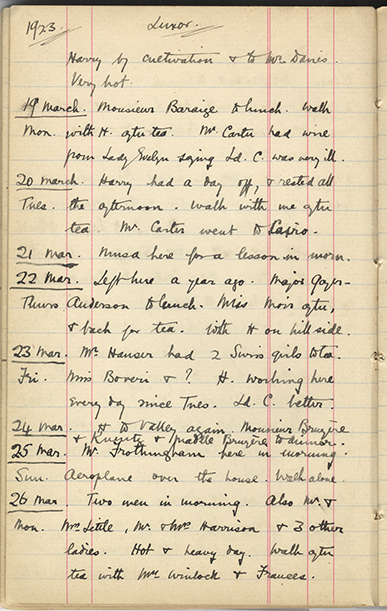 1923. Luxor.
Harry by cultivation & to Mr Davies.
Very hot.
19 March. Monsieur Baraize to lunch. Walk
Mon. with H. after tea. Mr Carter had wire
from Lady Evelyn saying Ld. C. was very ill.
20 March. Harry had a day off, & rested all
Tues. the afternoon. Walk with me after
tea. Mr. Carter went to Cairo.
21 Mar. Musa here for a lesson in morn.
22 Mar. Left here a year ago. Major Gayer-
Thurs Anderson to lunch. Miss Moir's after,
& back for tea. With H on hill side.
23 Mar. Mr Hauser had 2 Swiss girls to tea.
Fri. Miss Boveri & ? H. working here
every day since Tues. Ld. C. better.
24 Mar. H to Valley again. Monsieur Bruyère
& & Madame Bruyère to dinner.
25 Mar. Mr. Frothingham here in morning.
Sun. Aeroplane over the house. Walk alone.
26 Mar Two men in morning. Also Mr. &
Mon. Mrs Settle, Mr. & Mrs Harrison & 3 other
ladies. Hot & heavy day. Walk after
tea with Mrs Winlock & Frances.